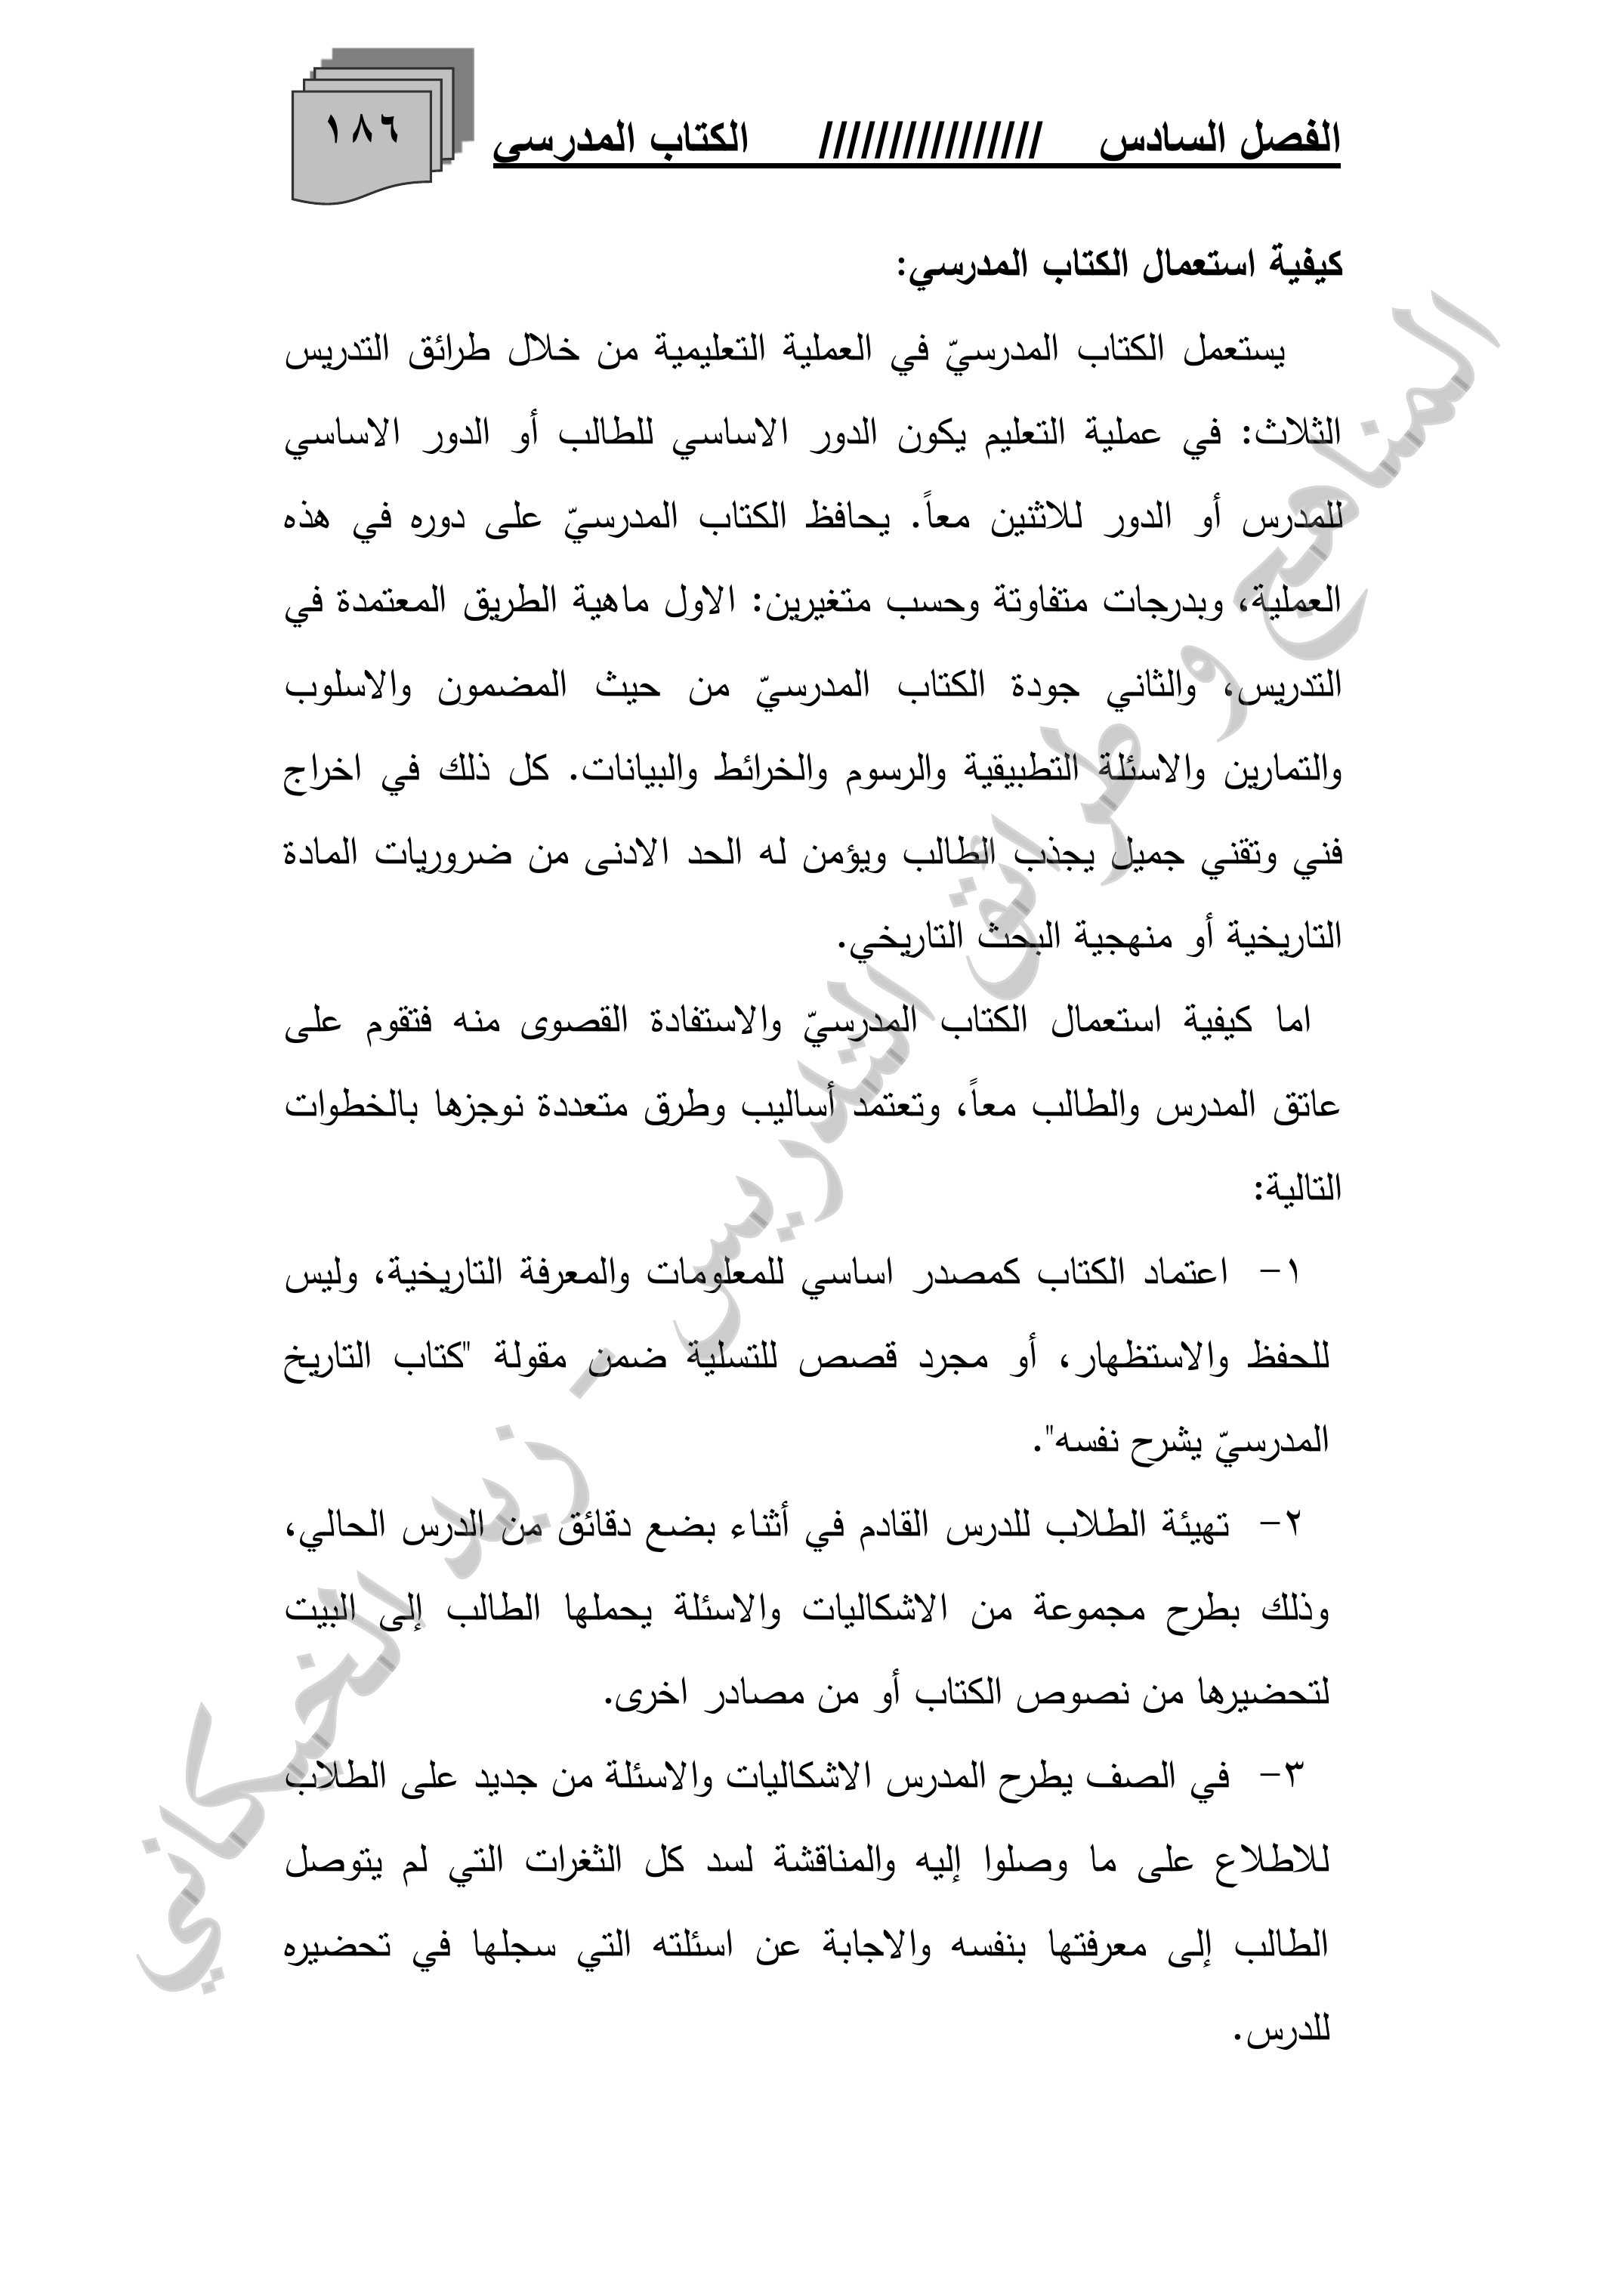 الفصل السادس //////////////// الكتاب المدرسي
١٨٦
كيفية استعمال الكتاب المدرسي:
يستعمل الكتاب المدرسيّ في العملية التعليمية من خلال طرائق التدريس
الثلاث: في عملية التعليم يكون الدور الاساسي للطالب أو الدور الاساسي
للمدرس أو الدور للاثنين معاً. يحافظ الكتاب المدرسيّ على دوره في هذه
العملية، وبدرجات متفاوتة وحسب متغيرين: الاول ماهية الطريق المعتمدة في
التدريس، والثاني جودة الكتاب المدرسيّ من حيث المضمون والاسلوب
والتمارين والاسئلة التطبيقية والرسوم والخرائط والبيانات. كل ذلك في اخراج
فني وتقني جميل يجذب الطالب ويؤمن له الحد الادنى من ضروريات المادة
التاريخية أو منهجية البحث التاريخي.
اما كيفية استعمال الكتاب المدرسيّ والاستفادة القصوى منه فتقوم على
عاتق المدرس والطالب معاً، وتعتمد أساليب وطرق متعددة نوجزها بالخطوات
التالية:
١- اعتماد الكتاب كمصدر اساسي للمعلومات والمعرفة التاريخية، وليس
للحفظ والاستظهار، أو مجرد قصص للتسلية ضمن مقولة "كتاب التاريخ
المدرسيّ يشرح نفسه".
٢- تهيئة الطلاب للدرس القادم في أثناء بضع دقائق من الدرس الحالي،
وذلك بطرح مجموعة من الاشكاليات والاسئلة يحملها الطالب إلى البيت
لتحضيرها من نصوص الكتاب أو من مصادر اخرى.
٣- في الصف يطرح المدرس الاشكاليات والاسئلة من جديد على الطلاب
للاطلاع على ما وصلوا إليه والمناقشة لسد كل الثغرات التي لم يتوصل
الطالب إلى معرفتها بنفسه والاجابة عن اسئلته التي سجلها في تحضيره
للدرس.
المناهج و طرائق التدريس - زيد الخيكاني